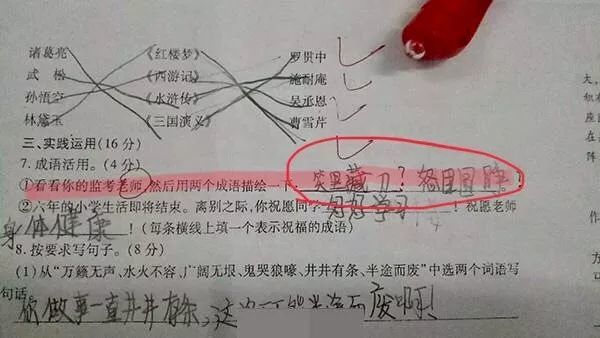 诸葛亮 《红楼梦》 罗贯中
武松 《西游记》 施耐庵
孙悟空 《水浒传》 吴承恩
林黛玉 《三国演义》 曹雪芹
三、实践运用(16分)
7. 成语活用。(4分)
①看看你的监考老师,然后用两个成语描绘一下. 笑里藏刀? !
②六年的小学生活即将结束。离别之际,你祝愿同学 好好学习 !祝愿老师
身体健康 !(每条横线上填一个表示祝福的成语)
8. 按要求写句子。(8分)
(1)从“万籁无声、水火不容、广阔无垠、鬼哭狼嚎、井井有条、半途而废”中选两个词语写
句话
你做事一直井井有条,这 废啊!
大,
积
在